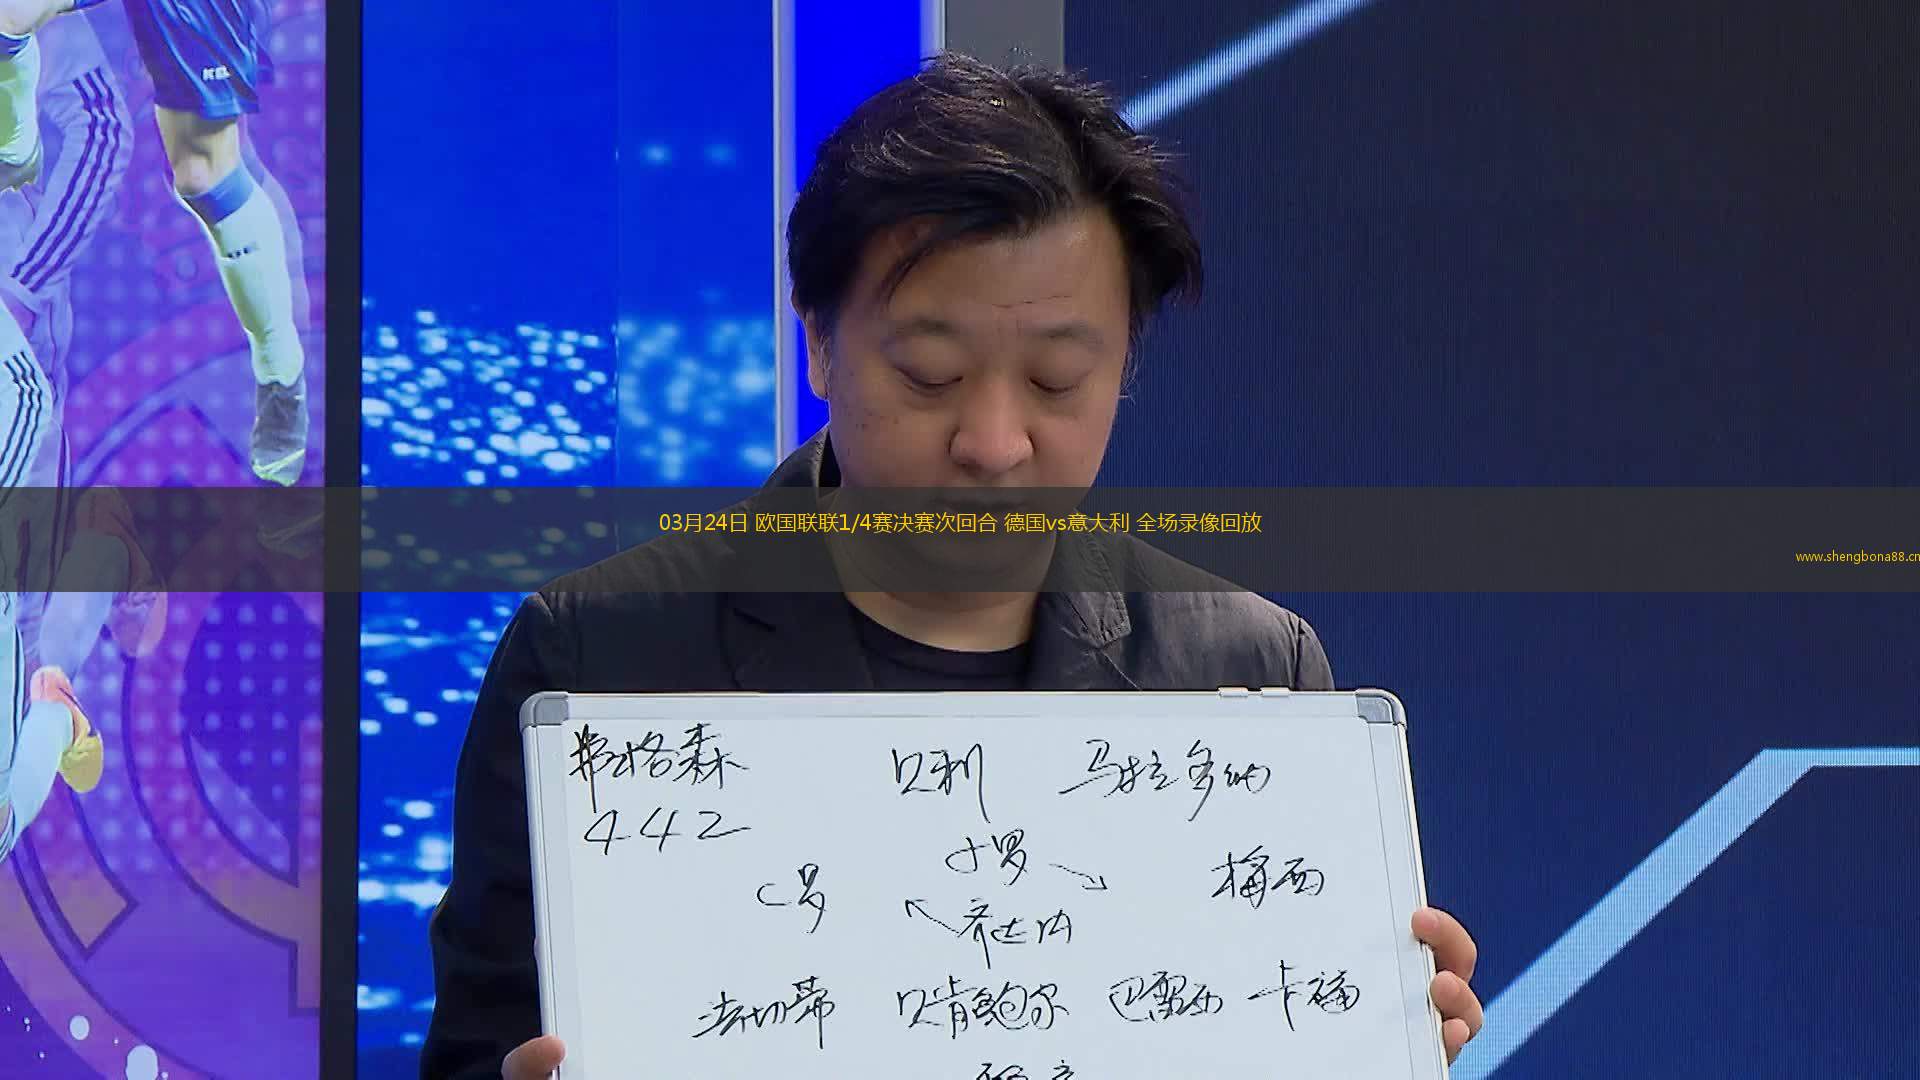 03月24日 欧国联联1/4赛决赛次回合 德国vs意大利 全场录像回放
www.shengbona88.cn
弗格森 贝利 马拉多纳
442
小罗
C罗 梅西
齐达内
法切蒂 贝肯鲍尔 巴雷西 卡福